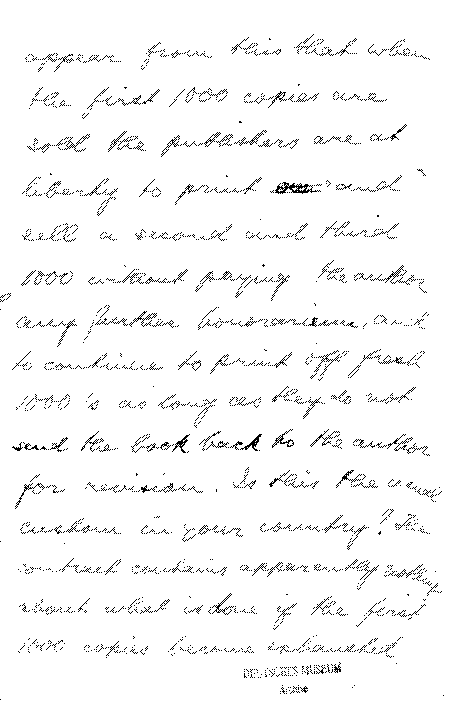 appear from this that when
the first 1000 copies are
sold the publishers are at
liberty to print and
sell a second and third
1000 without paying the author
any further honorarium, and
to continue to print off fresh
1000's as long as they do not
send the book back to the author
for revision. Is this the usual
custom in your country? The
contract contains apparently nothing
about what is done if the first
1000 copies become exhausted
DEUTSCHES MUSEUM
Archiv